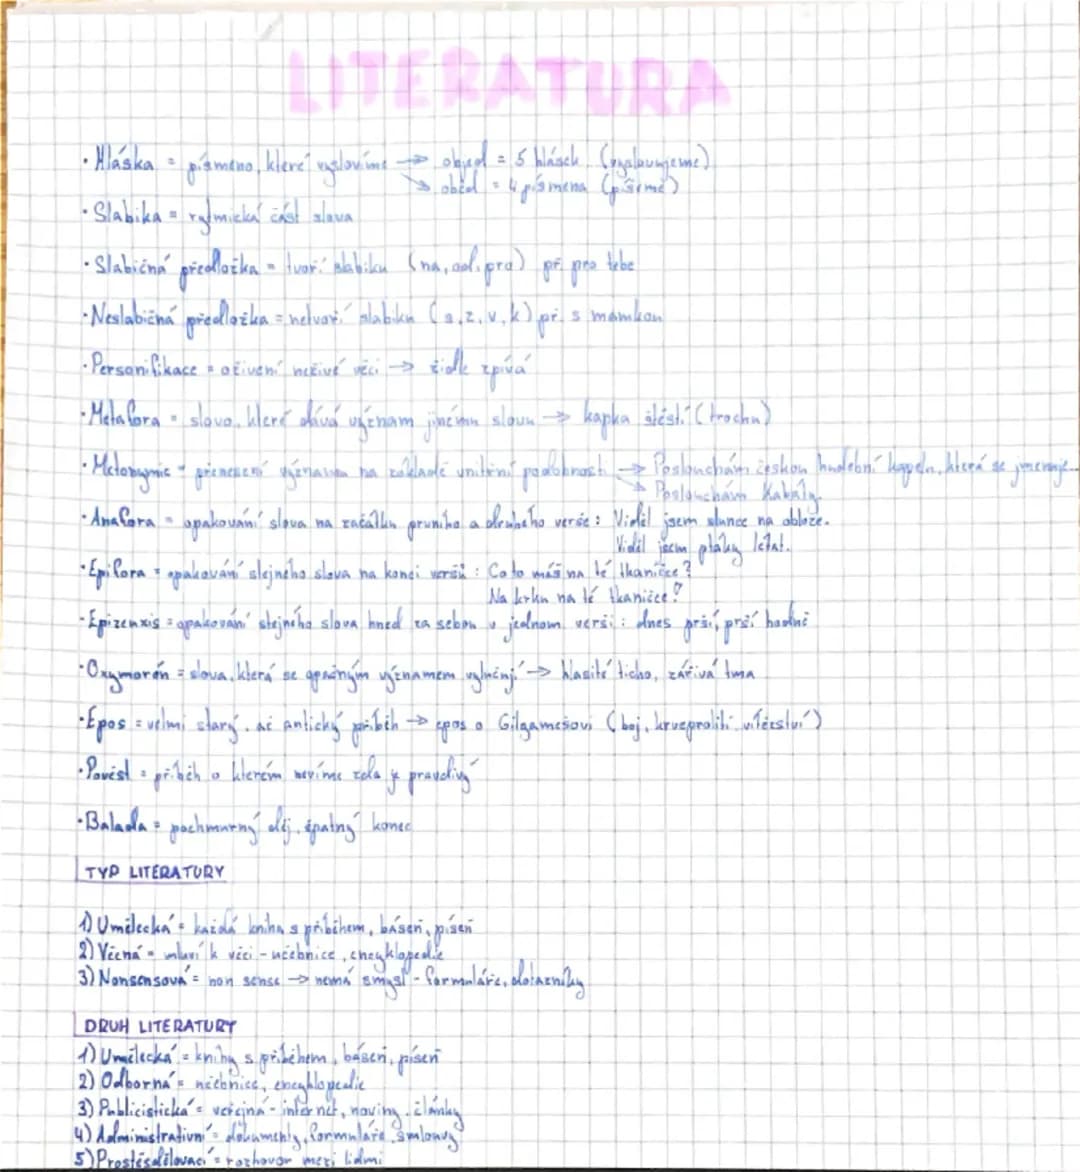 LITERATURA
· Hláska = písmeno, které vyslovíme → objed = 5 hlásek (vyslovujeme)
→ oběd = 4 písmena (píšeme)
· Slabika = rytmická část slova
· Slabičná předložka = tvoří slabiku (na, od, pro) př. pro tebe
· Neslabičná předložka = netvoří slabiku (s, z, v, k) př. s mamkou
· Personifikace = oživení neživé věci → židle zpívá
· Metafora = slovo, které dává význam jinému slovu → kapka štěstí (trochu)
· Metonymie = přenesení významu na základě vnitřní podobnosti → Poslouchám českou hudební kapelu, která se jmenuje...
→ Poslouchám Kabáty.
· Anafora = opakování slova na začátku prvního a druhého verše: Viděl jsem slunce na obloze.
Viděl jsem ptáky létat.
· Epifora = opakování stejného slova na konci veršů: Co to máš na té tkaničce?
Na krku na té tkaničce?
· Epizeuxis = opakování stejného slova hned za sebou v jednom verši: dnes prší, prší hodně
· Oxymorón = slova, která se opačným významem vylučují → hlasité ticho, zářivá tma
· Epos = velmi starý, až antický příběh → epos o Gilgamešovi (boj, krveprolití, vítězství)
· Pověst = příběh o kterém nevíme zda je pravdivý
· Balada = pochmurný děj, špatný konec
TYP LITERATURY
1) Umělecká = každá kniha s příběhem, báseň, píseň
2) Věcná = mluví k věci - učebnice, encyklopedie
3) Nonsensová = non sense → nemá smysl - formuláře, dotazníky
DRUH LITERATURY
1) Umělecká = knihy s příběhem, báseň, píseň
2) Odborná = učebnice, encyklopedie
3) Publicistická = veřejná - internet, noviny, články
4) Administrativní = dokumenty, formuláře, smlouvy
5) Prostěsdělovací = rozhovor mezi lidmi